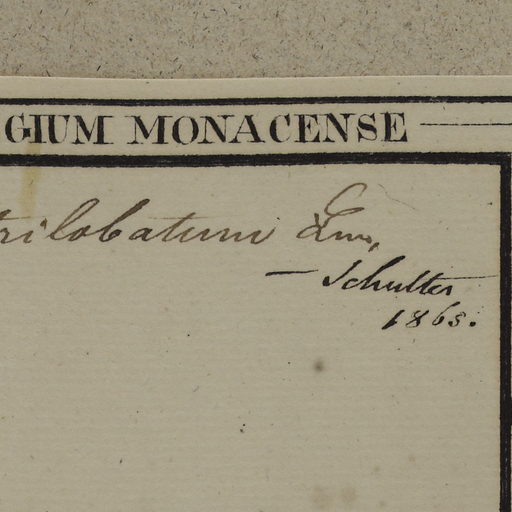 GIUM MONACENSE
trilobatum Lin,
— Schultes
1865.